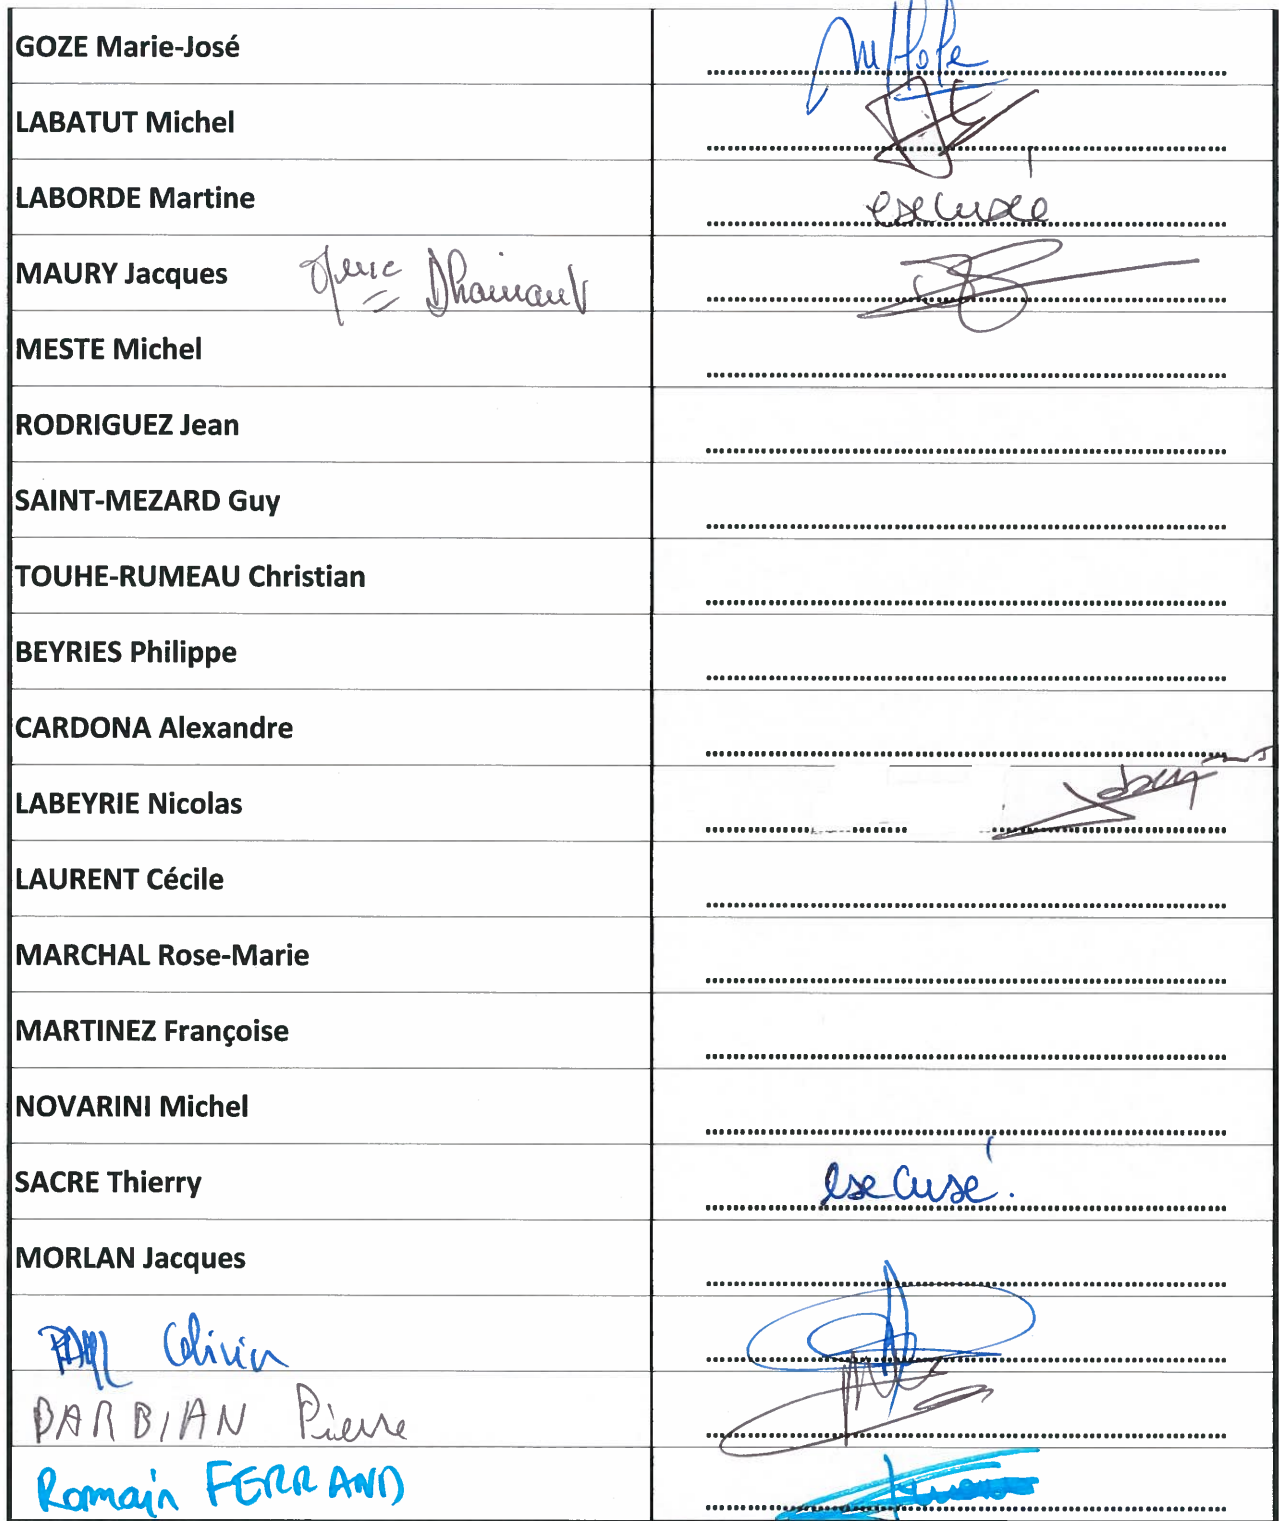 GOZE Marie-José
LABATUT Michel
LABORDE Martine excusée
MAURY Jacques Dhainaut
MESTE Michel
RODRIGUEZ Jean
SAINT-MEZARD Guy
TOUHE-RUMEAU Christian
BEYRIES Philippe
CARDONA Alexandre
LABEYRIE Nicolas
LAURENT Cécile
MARCHAL Rose-Marie
MARTINEZ Françoise
NOVARINI Michel
SACRE Thierry excusé.
MORLAN Jacques
DARBIAN Pierre
Romain FERRAND